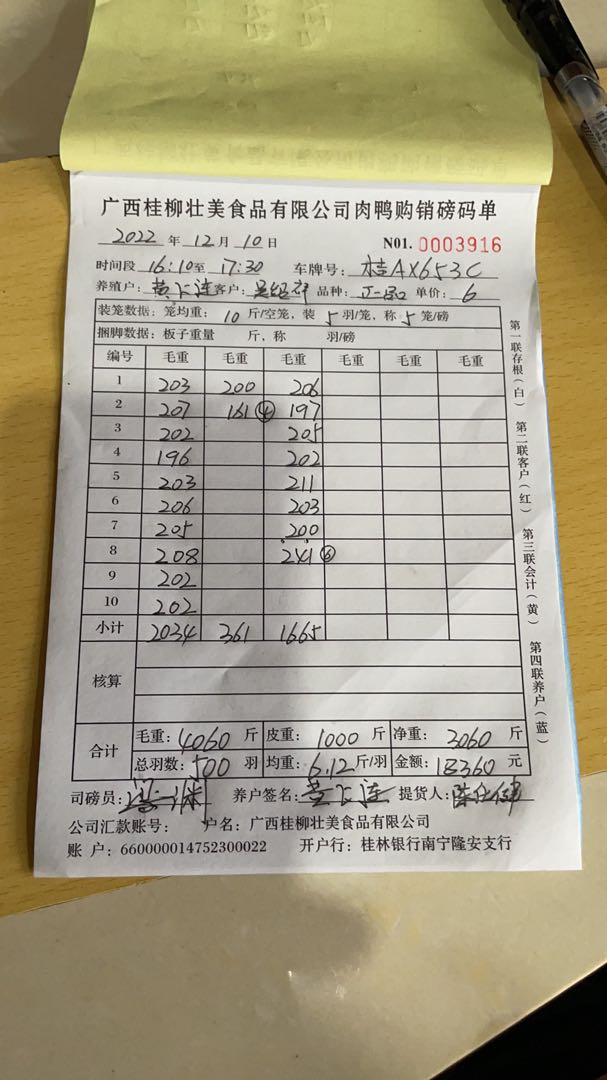 广西桂柳壮美食品有限公司肉鸭购销磅码单
2022 年 12 月 10 日 N01. 0003916
时间段 16:10 至 17:30 车牌号: 桂AX653C
养殖户: 连 客户: 品种: 单价: 6
装笼数据: 笼均重: 10 斤/空笼, 装 5 羽/笼, 称 5 笼/磅
捆脚数据: 板子重量 斤, 称 羽/磅
编号 毛重 毛重 毛重 毛重 毛重 毛重
1 203 200 206
2 207 161 ④ 197
3 202 205
4 196 202
5 203 211
6 206 203
7 205 200
8 208 241 ⑥
9 202
10 202
小计 2034 361 1665
核算
合计 毛重: 4060 斤 皮重: 1000 斤 净重: 3060 斤
总羽数: 500 羽 均重: 6.12 斤/羽 金额: 18360 元
司磅员: 养户签名: 连 提货人: 陈
公司汇款账号: 户名: 广西桂柳壮美食品有限公司
账 户: 660000014752300022 开户行: 桂林银行南宁隆安支行
第一联存根(白) 第二联客户(红) 第三联会计(黄) 第四联养户(蓝)